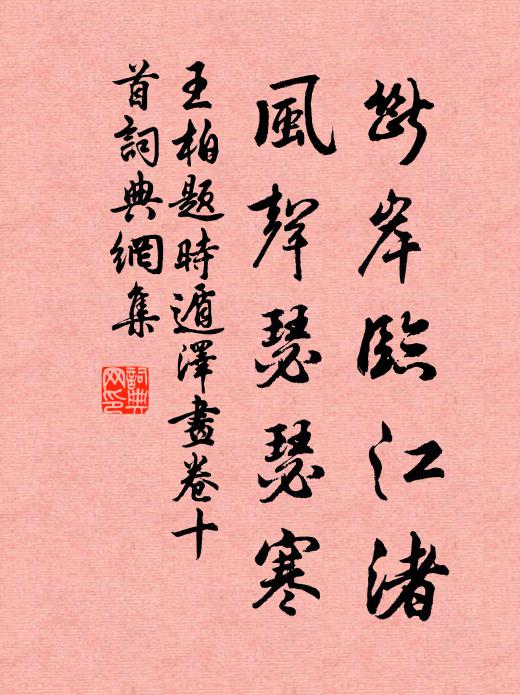 斷岸臨江渚
風聲瑟瑟寒
王柏題時遁澤畫卷十
首詞典網集
詞典網印